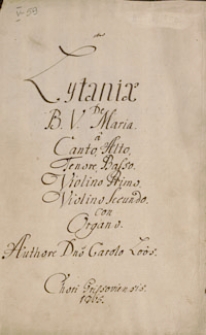 Lytaniæ
De
B. V. Maria.
à
Canto, Alto,
Tenore, Basso.
Violino Primo,
Violino Secundo.
con
Organo.
Authore Dno Carolo Loos.
Chori